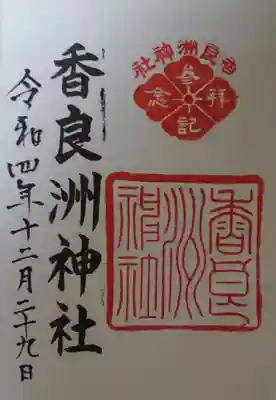 香良洲神社
参拝記念
香良洲神社
令和四年十二月二十九日
香良洲神社